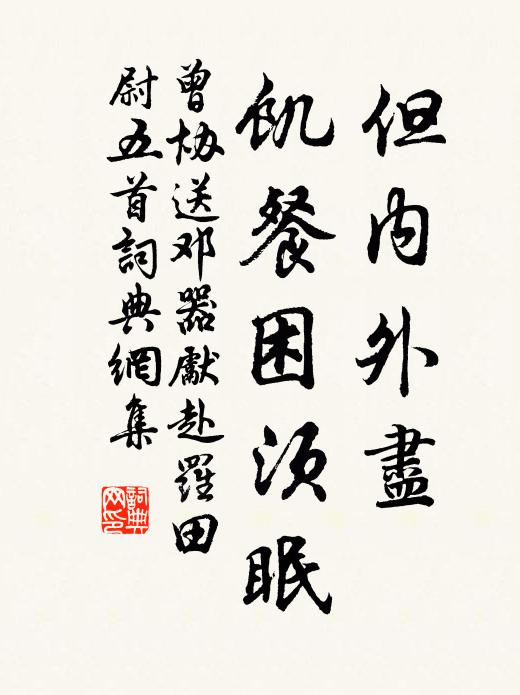 但内外盡
飢餐困須眠
曾協送邓器獻赴羅田
尉五首詞典網集
詞典网印